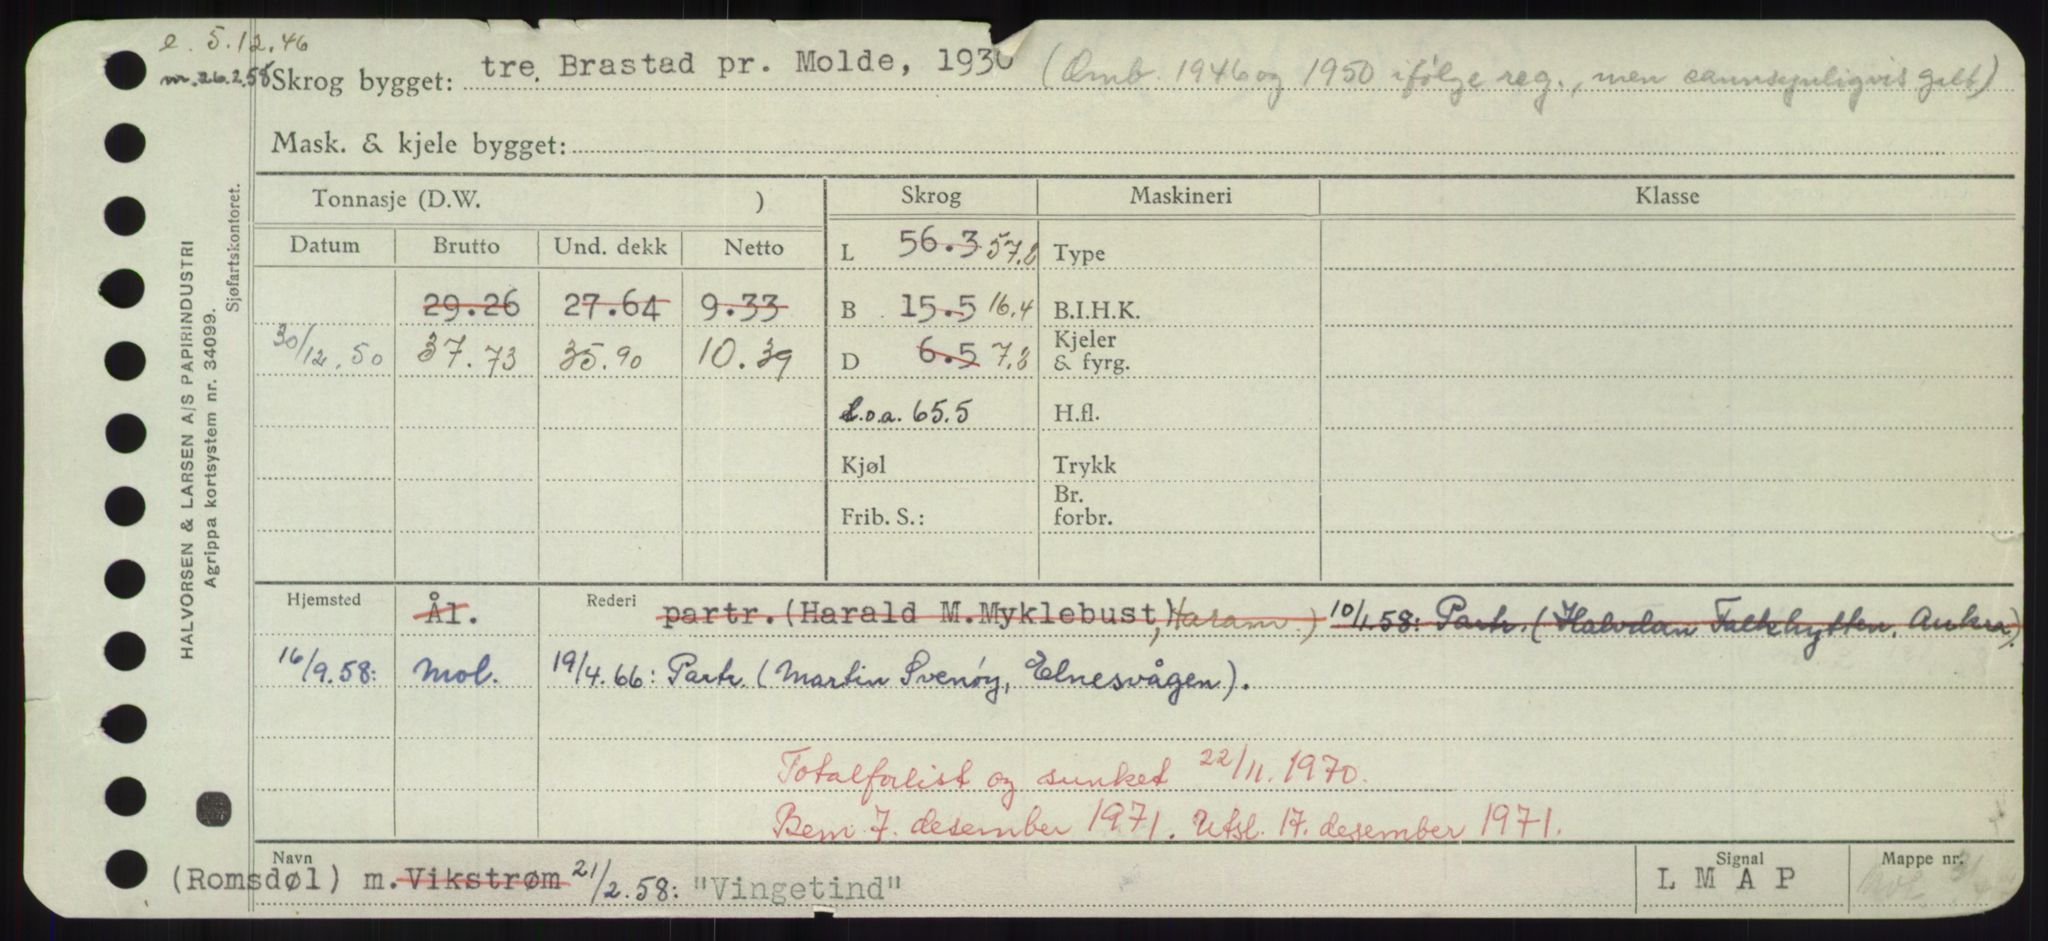 e. 5.12.46
m. 26.2.58 Skrog bygget: tre, Brastad pr. Molde, 1930 (Omb. 1946 og 1950 ifølge reg., men sannsynligvis galt)
Mask. & kjele bygget:
Tonnasje (D.W. ) Skrog Maskineri Klasse
Datum Brutto Und. dekk Netto L 56.3 57.8 Type
29.26 27.64 9.33 B 15.5 16.4 B.I.H.K.
30/12.50 37.73 35.90 10.39 D 6.5 7.8 Kjeler & fyrg.
L.o.a. 65.5 H.fl.
Kjøl Trykk
Frib. S.: Br. forbr.
Hjemsted Ål. Rederi partr. (Harald M.Myklebust, Haram.) 10/1.58: Partr. (Halvdan Falkhytten, Aukra).
16/9.58: Mol. 19/4.66: Partr. (Martin Svenøy, Elnesvågen).
Totalforlist og sunket 22/11.1970.
Bem 7. desember 1971. Utsl. 17. desember 1971.
Navn Signal Mappe nr.
(Romsdøl) m. Vikstrøm 21/2.58: "Vingetind" L M A P
HALVORSEN & LARSEN A/S PAPIRINDUSTRI
Agrippa kortsystem nr. 34099.
Sjøfartskontoret.